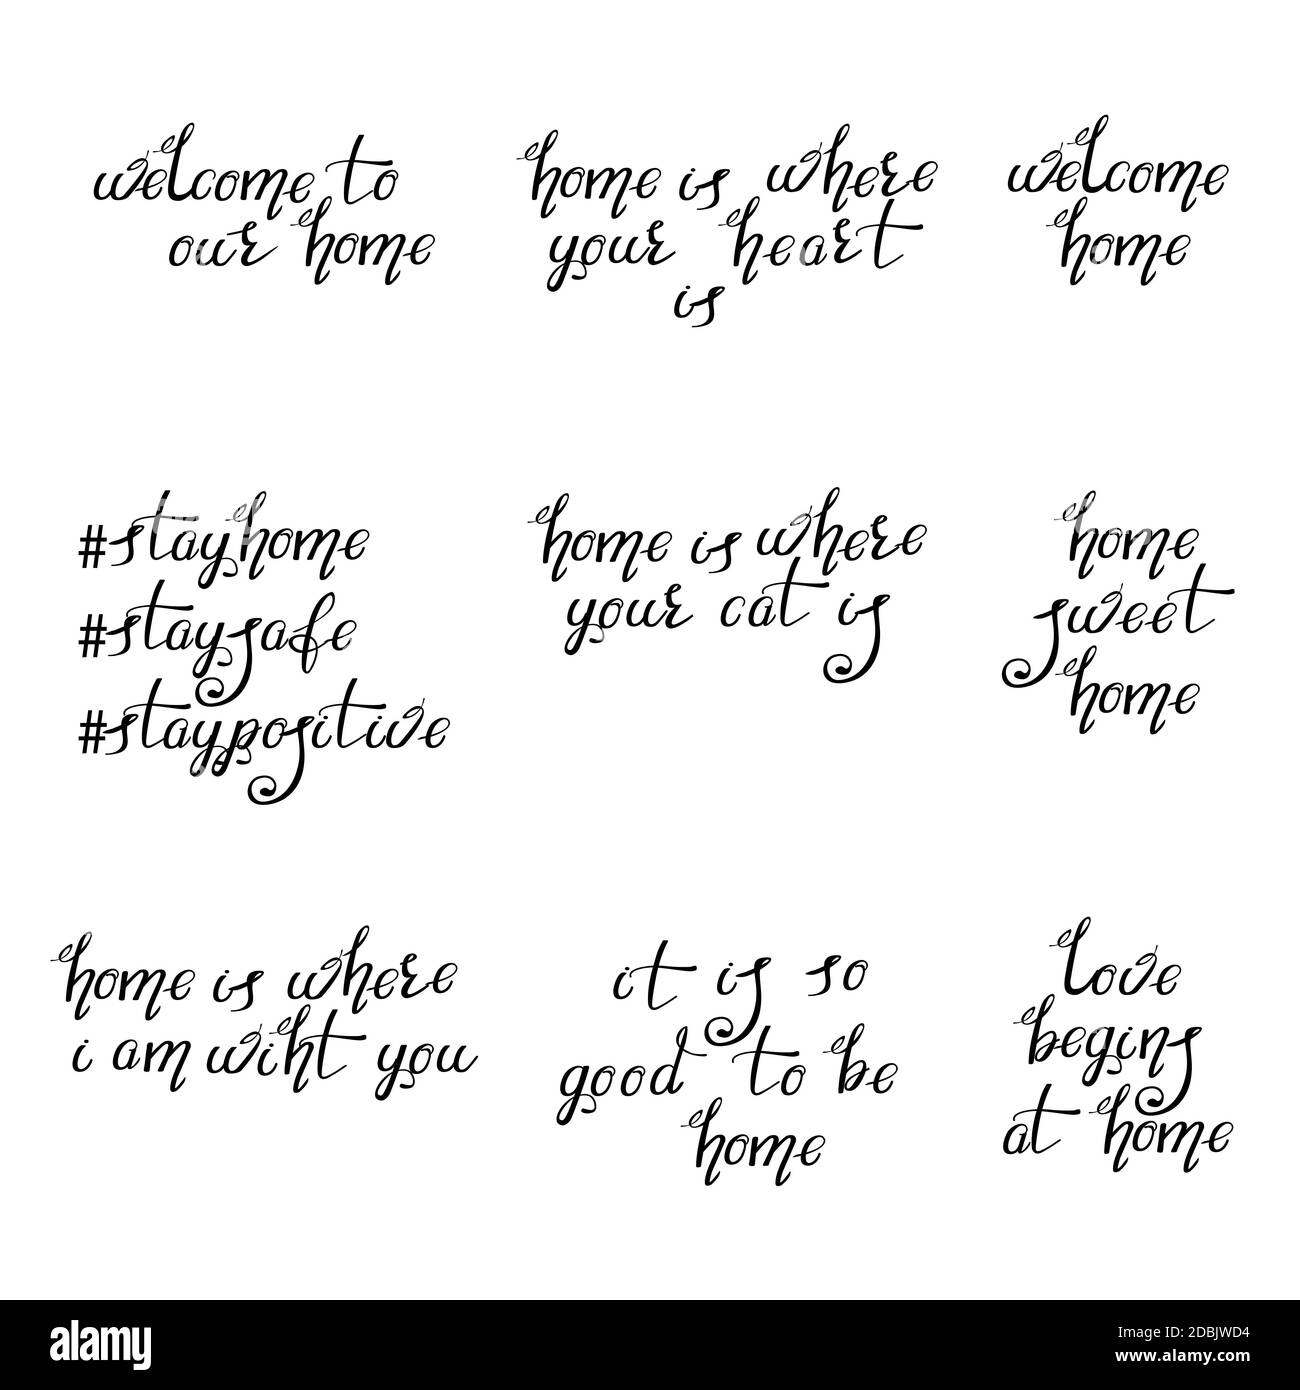 welcome to
our home
home is where
your heart
is
welcome
home
#stayhome
#staysafe
#staypositive
home is where
your cat is
home
sweet
home
home is where
i am wiht you
it is so
good to be
home
love
begins
at home
alamy
Image ID: 2DBJWD4
www.alamy.com